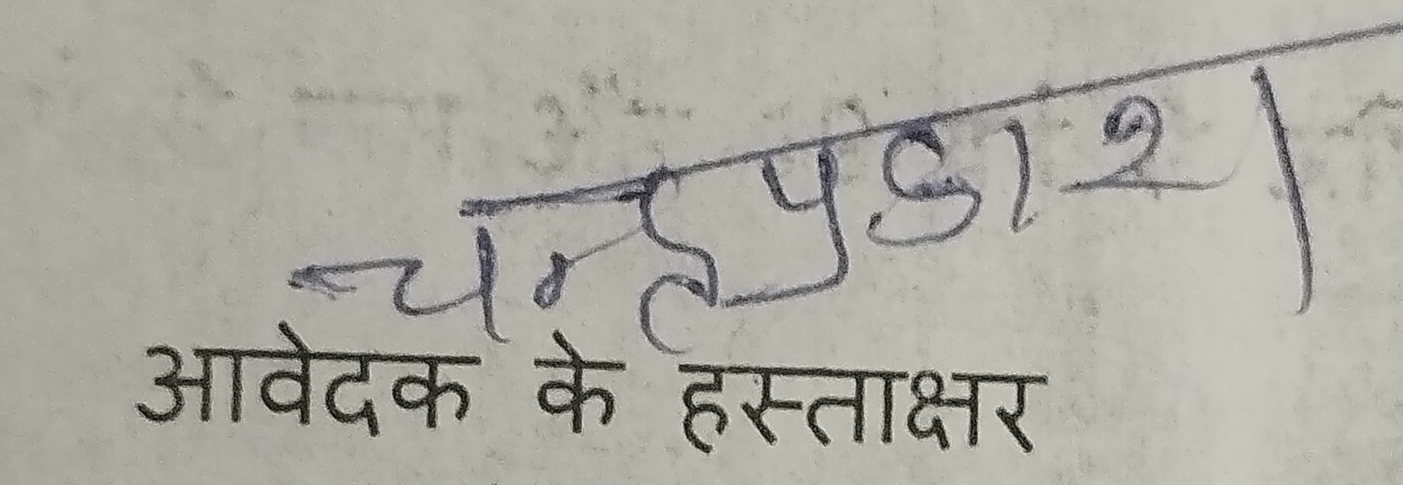 चन्द्रप्रकाश
आवेदक के हस्ताक्षर